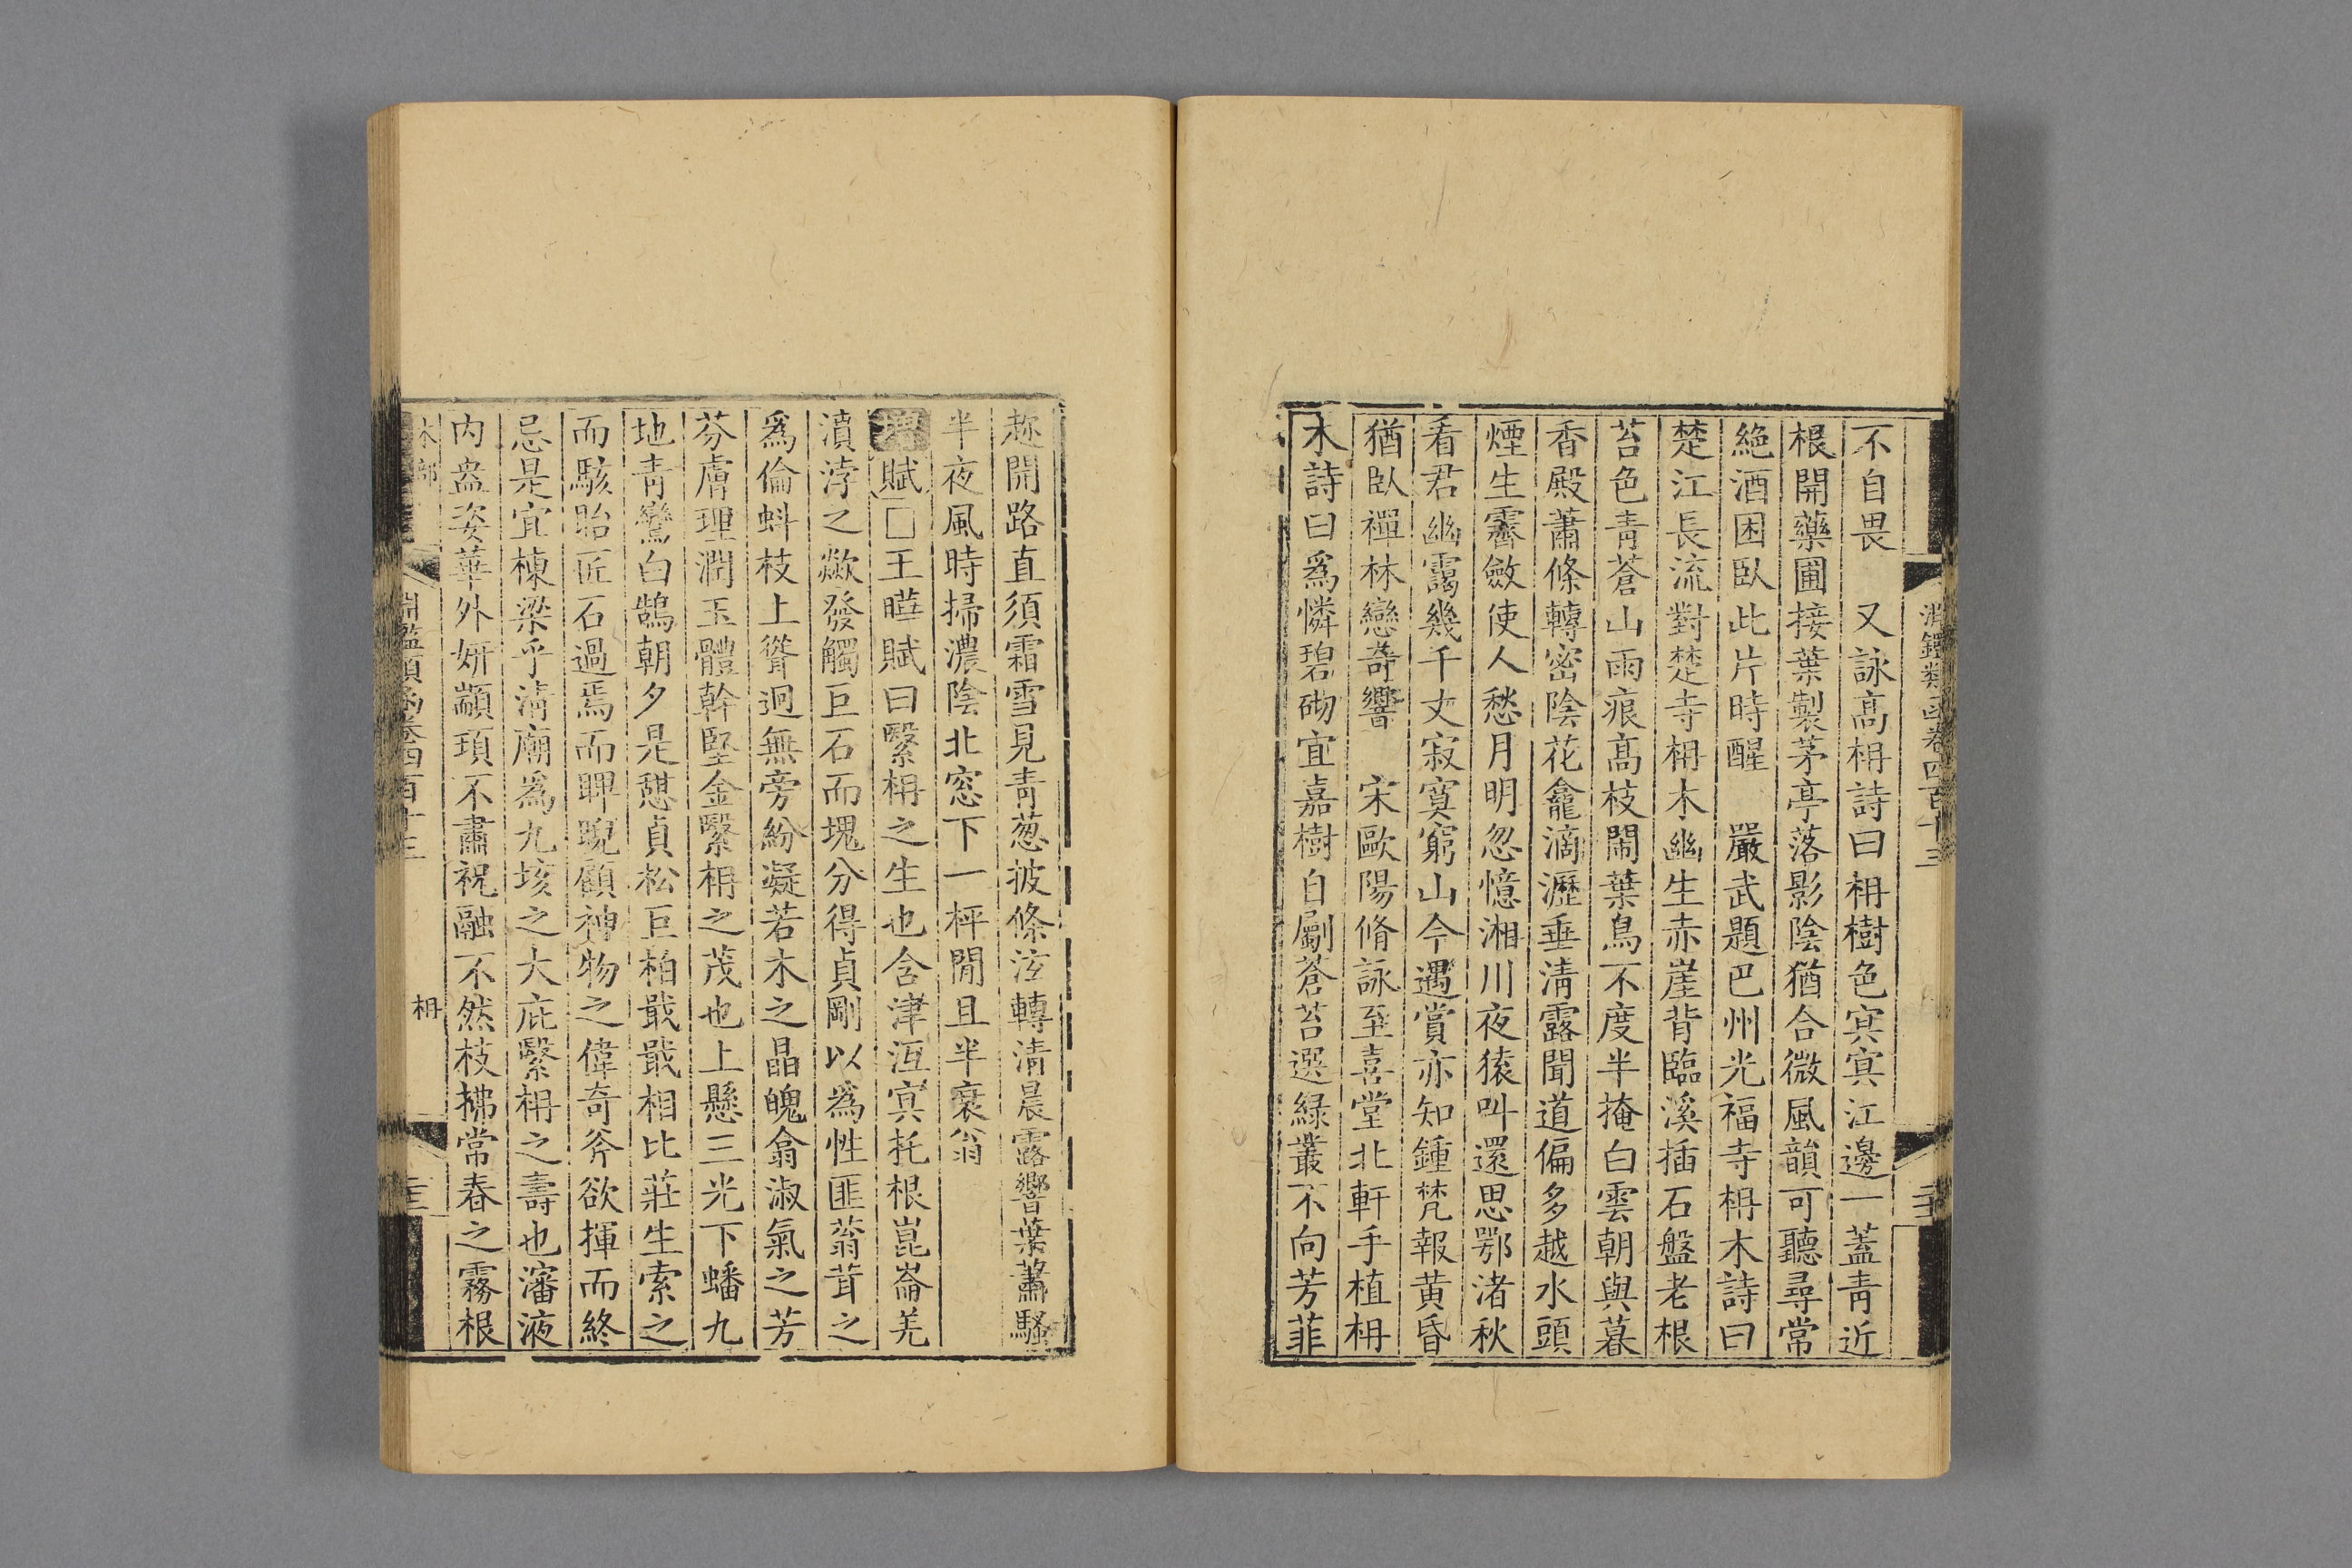 淵鑑類函卷四百十三
不自畏　又詠髙枏詩曰枏樹色㝠㝠江邊一蓋青近
根開藥圃接葉製茅亭落影陰猶合微風韻可聽尋常
絶酒困臥此片時醒　嚴武題巴州光福寺枏木詩曰
楚江長流對楚寺枏木幽生赤崖背臨溪插石盤老根
苔色青蒼山雨痕髙枝鬧葉鳥不度半掩白雲朝與暮
香殿蕭條轉密陰花龕滴瀝垂淸露聞道偏多越水頭
煙生霽斂使人愁月明忽憶湘川夜猿叫還思鄂渚秋
看君幽靄幾千丈寂寞窮山今遇賞亦知鍾梵報黄昏
猶臥禪林戀奇響　宋歐陽脩詠至喜堂北軒手植枏
木詩曰爲憐碧砌宜嘉樹自劚蒼苔選緑叢不向芳菲
趂開路直須霜雪見青葱披條泫轉清晨露響葉蕭騷
半夜風時掃濃陰北窓下一枰閒且半衰翁
賦□王曄賦曰繄枏之生也含津沍㝠托根崑崙羌
濆浡之歘發觸巨石而塊分得貞剛以爲性匪蓊茸之
爲倫蚪枝上聳迥無旁紛凝若木之晶魄翕淑氣之芳
芬膚理潤玉體幹堅金繄枏之茂也上懸三光下蟠九
地靑鸞白鵠朝夕是憇貞松巨柏戢戢相比莊生索之
而駭眙匠石過焉而睥睨顧神物之偉奇斧欲揮而終
忌是宜棟梁乎淸廟爲九垓之大庇繄枏之壽也瀋液
内盎姿華外姸顓頊不肅祝融不然枝拂常春之霧根
木部
淵鑑類函卷四百十三
枏